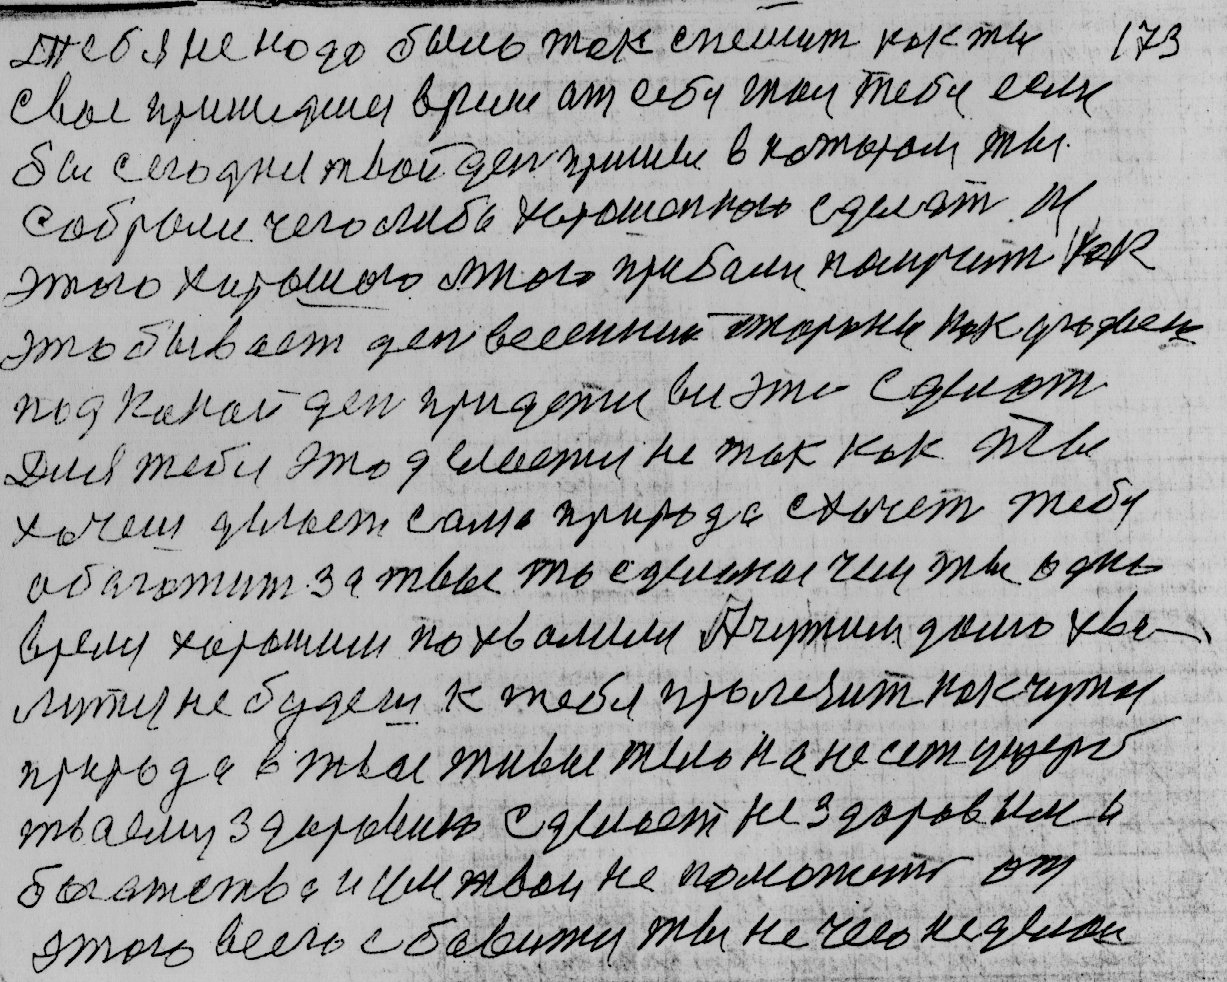 Тебя не надо было так спешит как ты 173
свое пришедшее время от себя тои тебя если
бы сегодня твой ден пришел в котором ты
собрали чего либо хорошого сделат И
этого хорошого много прибали получит как
это бывает ден весенний стороны как
под какой ден придется вы это сделат
Для тебя это делается не так как ты
хочеш делает сама природа схочет тебя
обагатит за твое то сделаное чем ты одно
время хорошим похвалили А чужим долго хва-
литися не будеш к тебя прилезит как чужая
природа в твое живое тело нанесет ущерб
твоему здоровию сделает не здоровим и
богатство и им твои не поможит от
этого всего сбавитися ты не чего не делаи